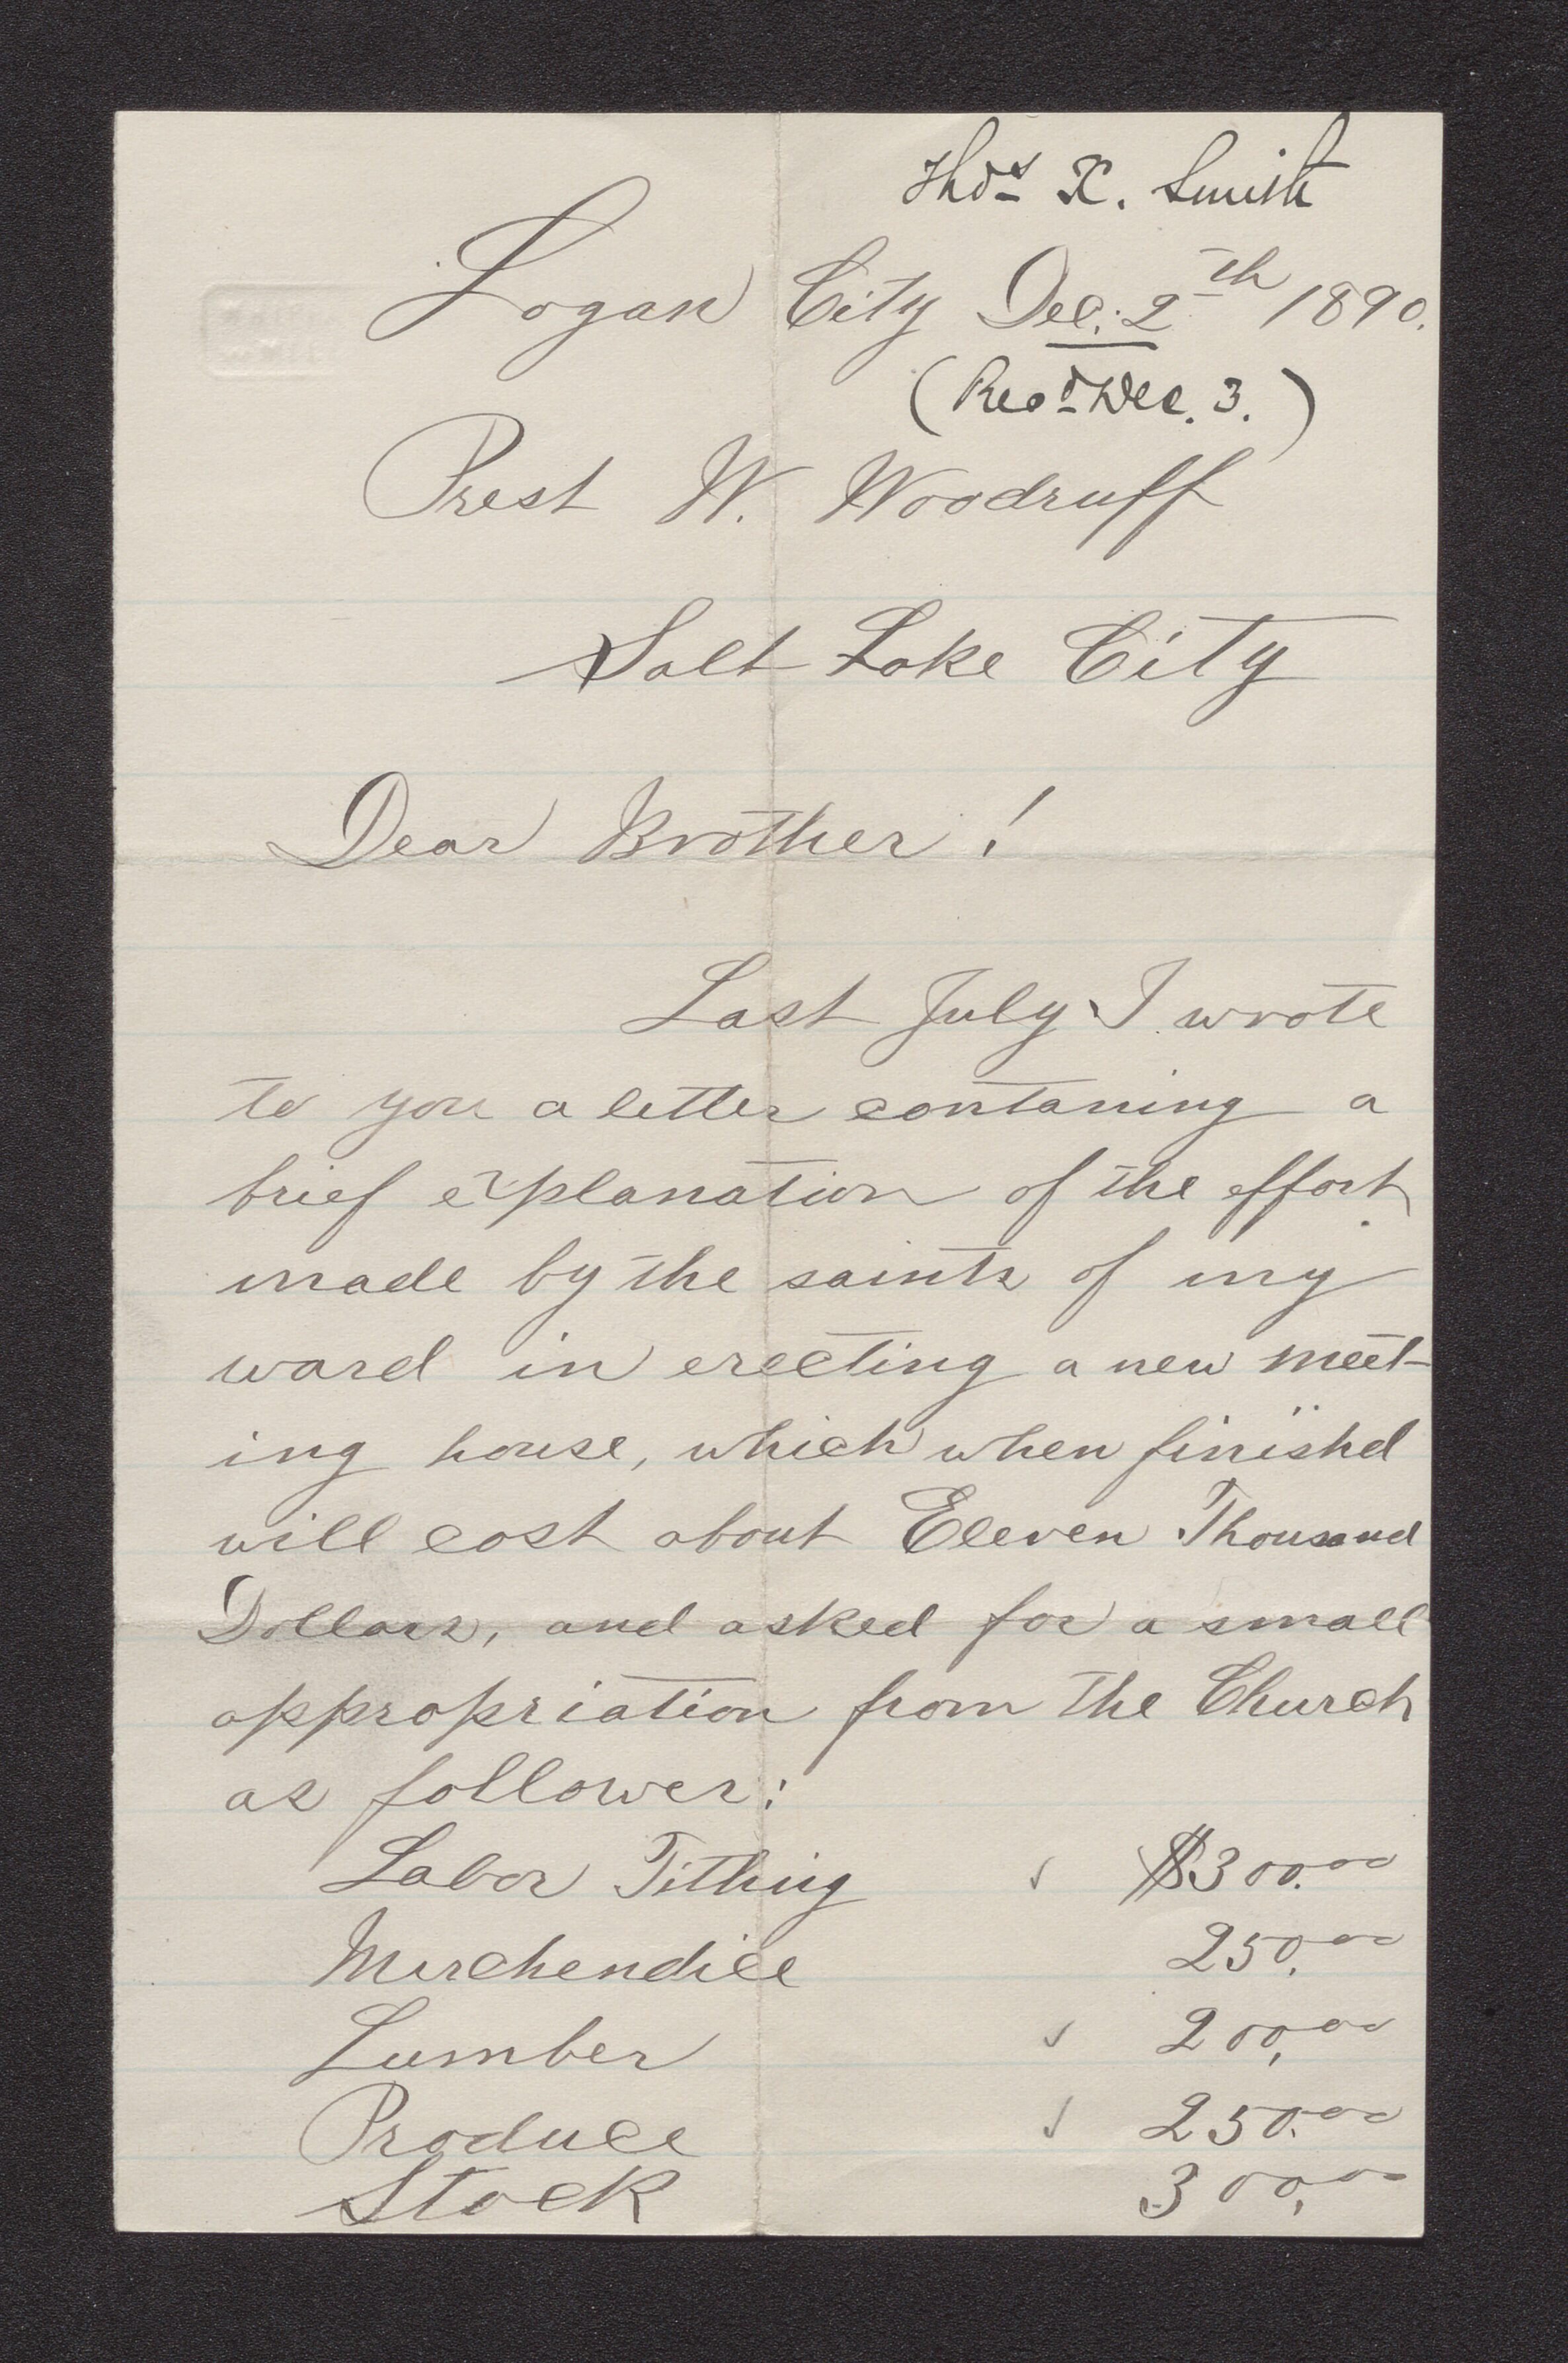 Thos X. Smith
Logan City Dec. 2th 1890.
(Recd Dec. 3.)
Prest W. Woodruff
Salt Lake City
Dear Brother!
Last July I wrote
to you a letter contaning a
brief explanation of the effort
made by the saints of my
ward in erecting a new meet-
ing house, which when finishd
will cost about Eleven Thousand
Dollars, and asked for a small
appropriation from the Church
as follower:
Labor Tithing ✓ $300.00
Merchendice 250.00
Lumber ✓ 200,00
Produce ✓ 250.00
Stock 300,00